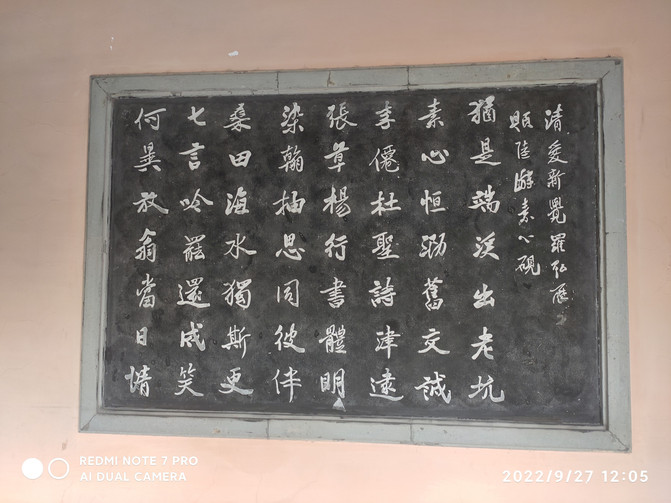 清愛新覺羅弘曆
題陸游素心硯
猶是端溪出老坑
素心恒泐舊交誠
李僊杜聖詩津逮
張草楊行書體明
染翰抽思同彼伴
桑田海水獨斯更
七言吟罷還成笑
何異放翁當日情
REDMI NOTE 7 PRO
AI DUAL CAMERA
2022/9/27 12:05